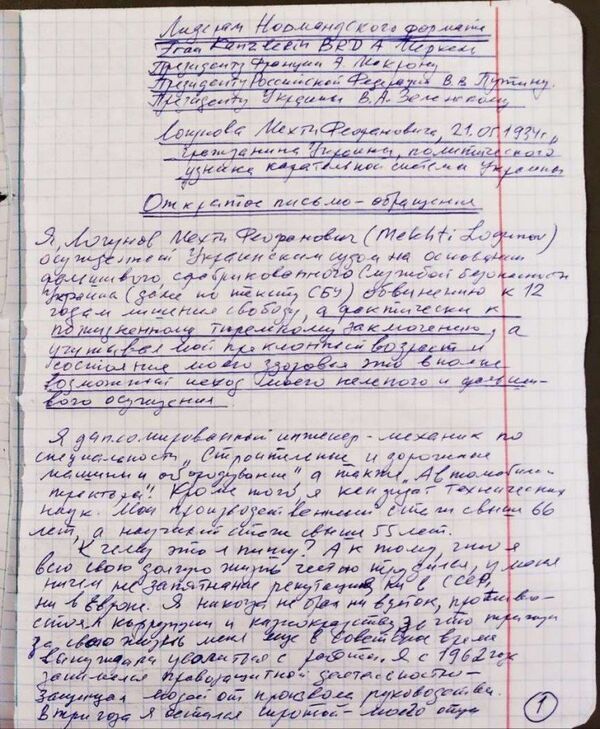 Лидерам Нормандского формата
Frau Kanzlerin BRD А Меркель
Президенту Франции А Макрону
Президенту Российской Федерации В.В. Путину.
Президенту Украины В.А. Зеленскому
Логунова Мехти Феофановича, 21.05 1934г.,
гражданина Украины, политического
узника карательной системы Украины
Открытое письмо-обращение
Я, Логунов Мехти Феофанович (Mekhti Logunov)
осужденный Украинским судом на основании
фальшивого, сфабрикованного Службой безопасности
Украины (далее по тексту СБУ) обвинению к 12
годам лишения свободы, а фактически к
пожизненному тюремному заключению, а
учитывая мой преклонный возраст и
состояние моего здоровья это вполне
возможный исход моего нелепого и фальши-
вого осуждения.
Я дипломированный инженер-механик по
специальности „Строительные и дорожные
машины и оборудование" а также „Автомобили
тракторы". Кроме того, я кандидат технических
наук. Мой производственный стаж свыше 66
лет, а научный стаж свыше 55 лет.
К чему это я пишу? А к тому, что я
всю свою долгую жизнь честно трудился, у меня
ничем не запятнанная репутация ни в СССР,
ни в Европе. Я никогда не брал ни взяток, противо-
стоял коррупции и казнокрадству, за что трижды
за свою жизнь меня еще в советское время
вынуждали уволиться с работы. Я с 1962 года
занимался правозащитной деятельностью-
защищая людей от произвола руководства.
В три года я остался сиротой - моего отца
1